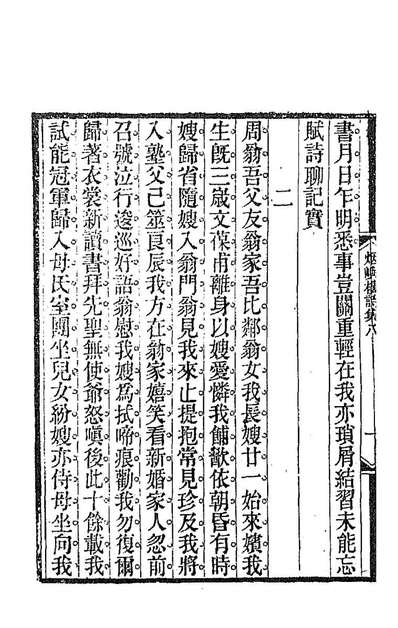 書月日乍明悉事豈關重輕在我亦瑣屑結習未能忘
賦詩聊記實
二
周翁吾父友翁家吾比鄰翁女我長嫂廿一始來嬪我
生旣三歲文葆甫離身以嫂愛憐我餔歠依朝昏有時
嫂歸省隨嫂入翁門翁見我來止提抱常見珍及我將
入塾父已筮良辰我方在翁家嬉笑看新婚家人忽前
召號泣行逡巡好語翁慰我嫂爲拭啼痕勸我勿復爾
歸著衣裳新讀書拜先聖無使爺怒嗔後此十餘載我
試能冠軍歸入母氏室團坐兒女紛嫂亦侍母坐向我
煙嶼樓詩集八
一